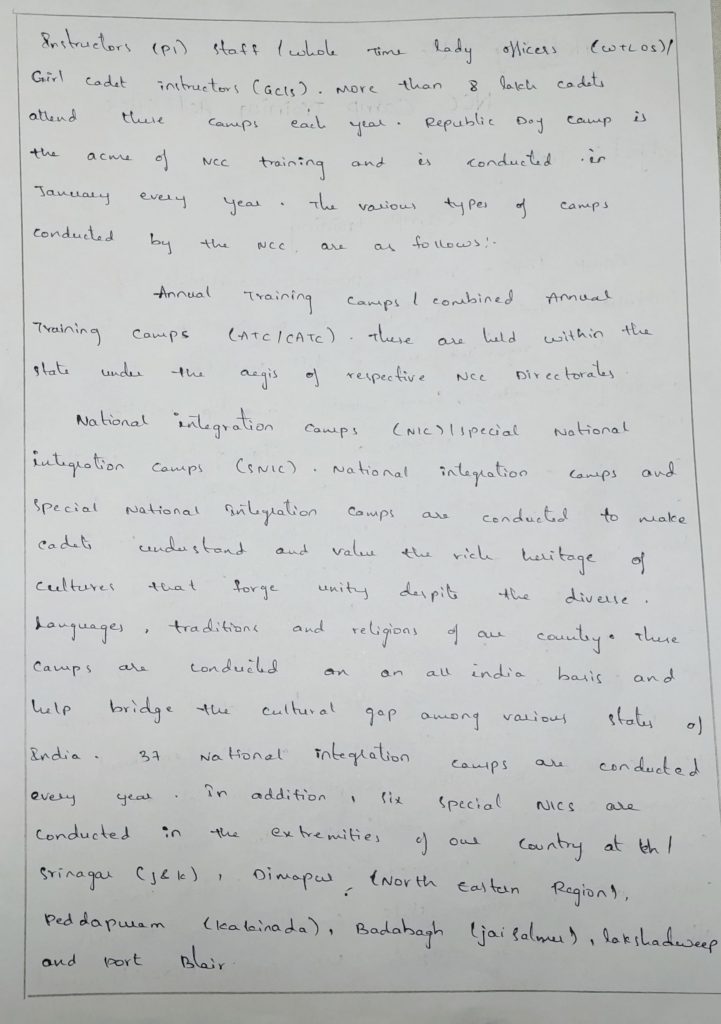 Instructors (PI) staff / whole Time lady officers (WTLOS)/
Girl cadet instructors (GCIs). More than 8 lakh cadets
attend these camps each year. Republic Day camp is
the acme of NCC training and is conducted in
January every year. The various types of camps
conducted by the NCC are as follows:-
Annual Training camps / combined Annual
Training camps (ATC/CATC). These are held within the
state under the aegis of respective NCC Directorates
National integration camps (NIC)/special National
integration camps (SNIC). National integration camps and
special National Integration camps are conducted to make
cadets understand and value the rich heritage of
cultures that forge unity despite the diverse.
Languages, traditions and religions of our country. These
camps are conducted on an all india basis and
help bridge the cultural gap among various states of
India. 37 National integration camps are conducted
every year. In addition, six special NICs are
conducted in the extremities of our country at
Srinagar (J&K), Dimapur (North Eastern Region),
Peddapuram (Kakinada), Badabagh (jaisalmer), lakshadweep
and port Blair.